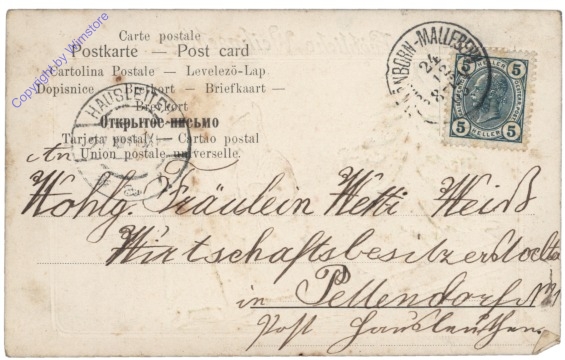 Copyright by Wimstore
Carte postale
Postkarte — Post card
Cartolina Postale — Levelező-Lap
Dopisnice — Briefkaart —
Brevkort
Открытое письмо
Tarjeta postal — Cartao postal
Union postale universelle.
HAUSLEITEN
BORN-MAILBERG
24
5 5
HELLER
5 5
An
Wohlg. Fräulein Wetti Weiß
Wirtschaftsbesitzerstochter
in Pellendorf
Post Hausleuthen